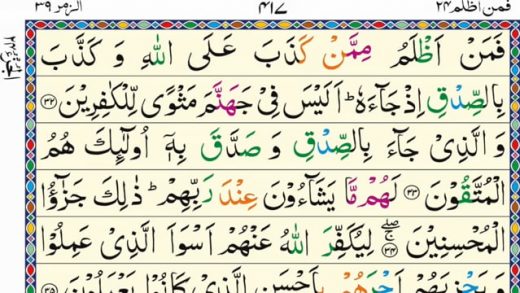 فمن اظلم ٢٤ ٤١٧ الزمر ٣٩
فَمَنْ اَظْلَمُ مِمَّنْ كَذَبَ عَلَى اللّٰهِ وَ كَذَّبَ
بِالصِّدْقِ اِذْ جَآءَهٗ ؕ اَلَيْسَ فِیْ جَهَنَّمَ مَثْوًی لِّلْكٰفِرِيْنَ ﴿٣٢﴾
وَ الَّذِیْ جَآءَ بِالصِّدْقِ وَ صَدَّقَ بِهٖۤ اُولٰٓئِكَ هُمُ
الْمُتَّقُوْنَ ﴿٣٣﴾ لَهُمْ مَّا يَشَآءُوْنَ عِنْدَ رَبِّهِمْ ؕ ذٰلِكَ جَزٰٓؤُا
الْمُحْسِنِيْنَ ﴿٣٤﴾ لِيُكَفِّرَ اللّٰهُ عَنْهُمْ اَسْوَاَ الَّذِیْ عَمِلُوْا
وَ يَجْزِيَهُمْ اَجْرَهُمْ بِاَحْسَنِ الَّذِیْ كَانُوْا يَعْمَلُوْنَ ﴿٣٥﴾